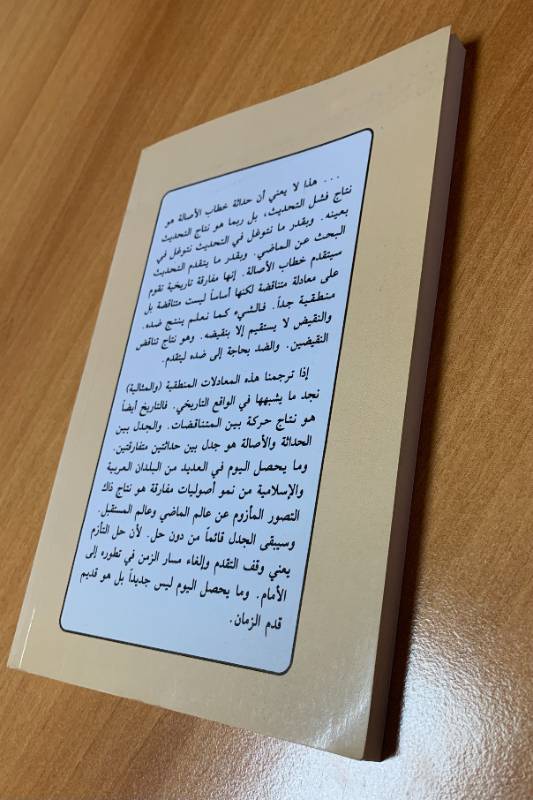 ... هذا لا يعني أن حداثة خطاب الأصالة هو
نتاج فشل التحديث، بل ربما هو نتاج التحديث
بعينه. وبقدر ما نتوغل في التحديث نتوغل في
البحث عن الماضي. وبقدر ما يتقدم التحديث
سيتقدم خطاب الأصالة. إنها مفارقة تاريخية تقوم
على معادلة متناقضة لكنها أساساً ليست متناقضة بل
منطقية جداً. فالشيء كما نعلم ينتج ضده.
والنقيض لا يستقيم إلا بنقيضه. وهو نتاج تناقض
النقيضين. والضد بحاجة إلى ضده ليتقدم.
إذا ترجمنا هذه المعادلات المنطقية (والمثالية)
نجد ما يشبهها في الواقع التاريخي. فالتاريخ أيضاً
هو نتاج حركة بين المتناقضات. والجدل بين
الحداثة والأصالة هو جدل بين حداثتين متفارقتين.
وما يحصل اليوم في العديد من البلدان العربية
والإسلامية من نمو أصوليات مفارقة هو نتاج ذاك
التصور المأزوم عن عالم الماضي وعالم المستقبل.
وسيبقى الجدل قائماً من دون حل. لأن حل التأزم
يعني وقف التقدم وإلغاء مسار الزمن في تطوره إلى
الأمام. وما يحصل اليوم ليس جديداً بل هو قديم
قدم الزمان.